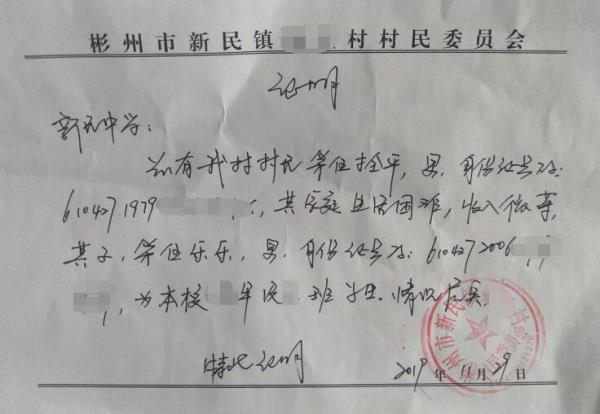 彬州市新民镇 村村民委员会
证明
新民中学:
兹有我村村民 拴平,男,身份证号码:
6104271979 ,其家庭生活困难,收入微薄,
其子, 乐乐,男,身份证号码:6104272006
,为本校 年级 班学生。情况属实。
特此证明
2019年11月29日
彬州市新民 村村民委员会